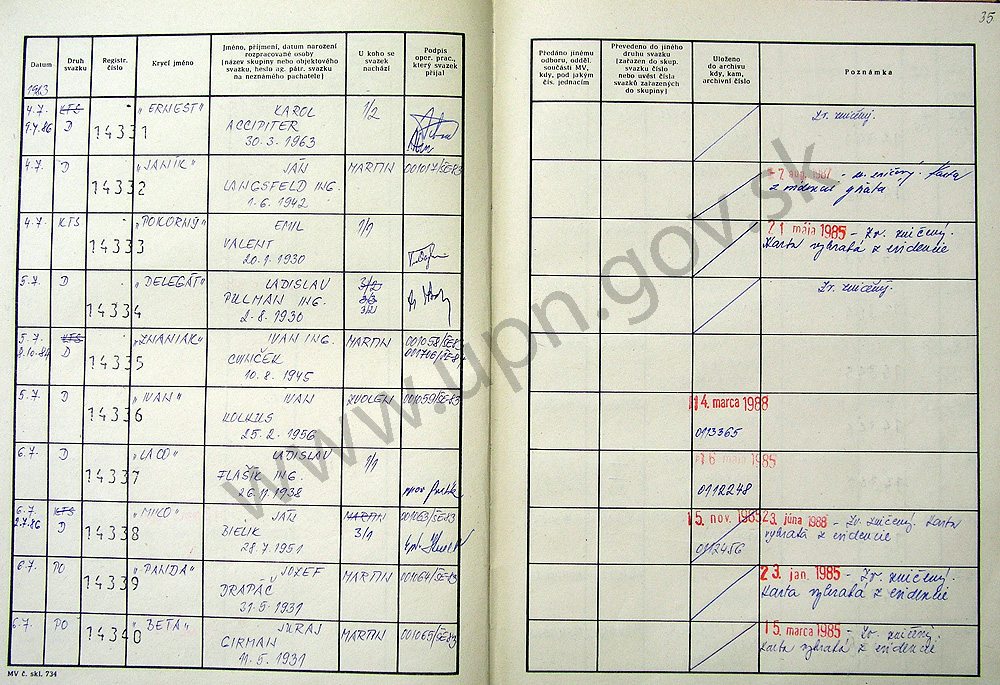 35
Datum
Druh svazku
Registr. číslo
Krycí jméno
Jméno, příjmení, datum narození
rozpracované osoby
(název skupiny nebo objektového
svazku, heslo ag. pátr. svazku
na neznámého pachatele)
U koho se
svazek
nachází
Podpis
oper. prac.,
který svazek
přijal
Předáno jinému
odboru, odděl.
součásti MV,
kdy, pod jakým
čís. jednacím
Převedeno do jiného
druhu svazku
(zařazen do skup.
svazku číslo
nebo uvést čísla
svazků zařazených
do skupiny)
Uloženo
do archivu
kdy, kam,
archivní číslo
Poznámka
1983
4.7. KTS 14331 „ERNEST“ KAROL 1/2 Zv. zničený.
9.4.86 D ACCIPITER
30.3.1963
4.7. D 14332 „JANÍK“ JÁN MARTIN 001017/ŠE-83 aug. 1987 - zv. zničený. Karta
LANGSFELD ING. z indexu
1.6.1942
4.7. KTS 14333 „POKORNÝ“ EMIL 1/1 21 mája 1985 - Zv. zničený.
VALENT Karta vybratá z evidencie
20.1.1930
5.7. D 14334 „DELEGÁT“ LADISLAV 3/2 Zv. zničený.
PULLMAN ING.
2.8.1930 3/2
5.7. KTS 14335 „ZNANIAK“ IVAN ING. MARTIN 001058/ŠE-83
D CUNČEK
10.8.1945
5.7. D 14336 „IVAN“ IVAN ZVOLEN 001059/ŠE-83 14. marca 1988
25.2.1956 0113365
6.7. D 14337 „LACO“ LADISLAV 1/1 16 mája 1985
FLAŠÍK ING. 0112248
26.11.1938
6.7. KTS 14338 „MILO“ JÁN MARTIN 001063/ŠE-83 15. nov. 1985 23. júna 1988 - Zv. zničený. Karta
2.7.86 D BIELIK 3/1 0112456 vybratá z evidencie
28.7.1951
6.7. PO 14339 „PANDA“ JOZEF MARTIN 001064/ŠE-83 23. jan. 1985 - Zv. zničený.
DRAPÁČ Karta vybratá z evidencie
31.5.1931
6.7. PO 14340 „BETA“ JURAJ MARTIN 001065/ŠE-83 15. marca 1985 - Zv. zničený.
CIRMAN Karta vybratá z evidencie
11.5.1931
MV č. skl. 734
www.upn.gov.sk